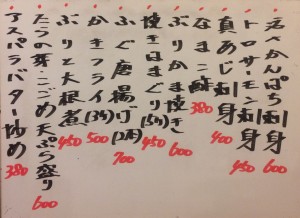 活かんぱち刺身 600
トロサーモン刺身 450
真あじ刺身 400
なまこ酢 380
ぶりかま焼き 600
焼きはまぐり(5ヶ) 450
ふぐ唐揚げ(2ヶ) 700
かきフライ(3ヶ) 500
ぶりと大根煮 450
たらの芽・こごめ天ぷら盛り 600
アスパラバター炒め 380